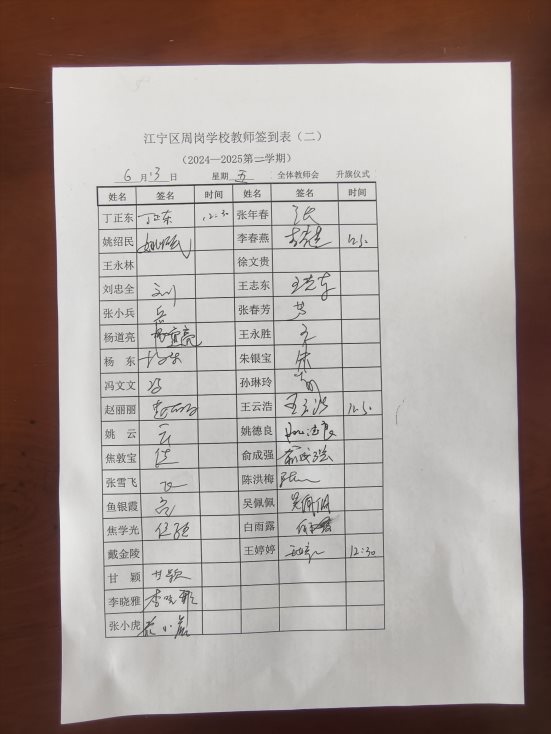 江宁区周岗学校教师签到表（二）
（2024—2025第二学期）
6 月 13 日 星期 五 全体教师会 升旗仪式
姓名 签名 时间 姓名 签名 时间
丁正东 丁正东 12:30 张年春 张
姚绍民 姚绍民 李春燕 李春燕
王永林 徐文贵
刘忠全 王志东 王志东
张小兵 张春芳 芳
杨道亮 王永胜 王
杨 东 朱银宝 朱
冯文文 冯 孙琳玲
赵丽丽 王云浩
姚 云 云 姚德良 姚德良
焦敦宝 俞成强 俞成强
张雪飞 飞 陈洪梅
鱼银霞 吴佩佩 吴佩佩
焦学光 白雨露
戴金陵 王婷婷 12:30
甘 颖 甘颖
李晓雅 李晓雅
张小虎 张小虎